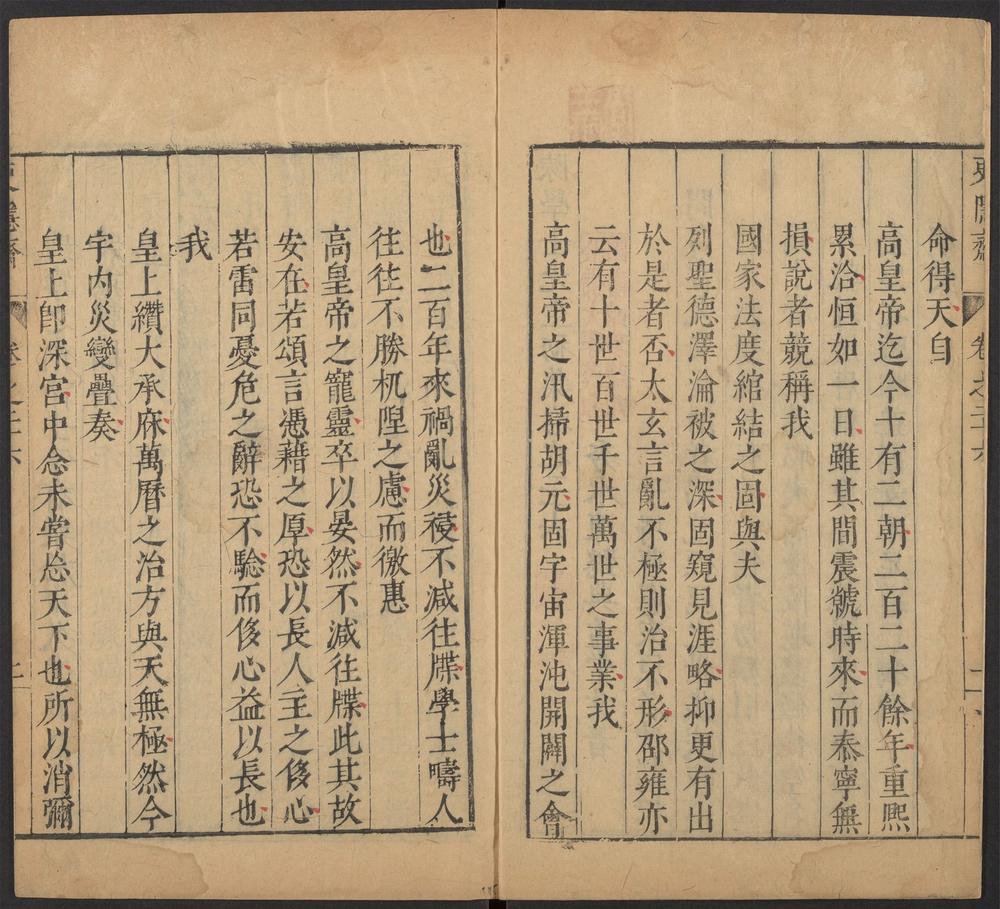 命得天自
高皇帝迄今十有二朝二百二十餘年重熙
累洽恒如一日雖其間震虩時來而泰寧無
損說者競稱我
國家法度綰結之固與夫
列聖德澤淪被之深固窺見涯略抑更有出
於是者否太玄言亂不極則治不形邵雍亦
云有十世百世千世萬世之事業我
高皇帝之汛掃胡元固宇宙渾沌開闢之會
也二百年來禍亂災祲不減往牒學士疇人
往往不勝杌隉之慮而徼惠
高皇帝之寵靈卒以晏然不減往牒此其故
安在若頌言憑藉之厚恐以長人主之侈心
若雷同憂危之辭恐不驗而侈心益以長也
我
皇上纘大承庥萬曆之治方與天無極然今
宇内災變疊奏
皇上卽深宮中念未嘗忘天下也所以消彌
卷之二十六